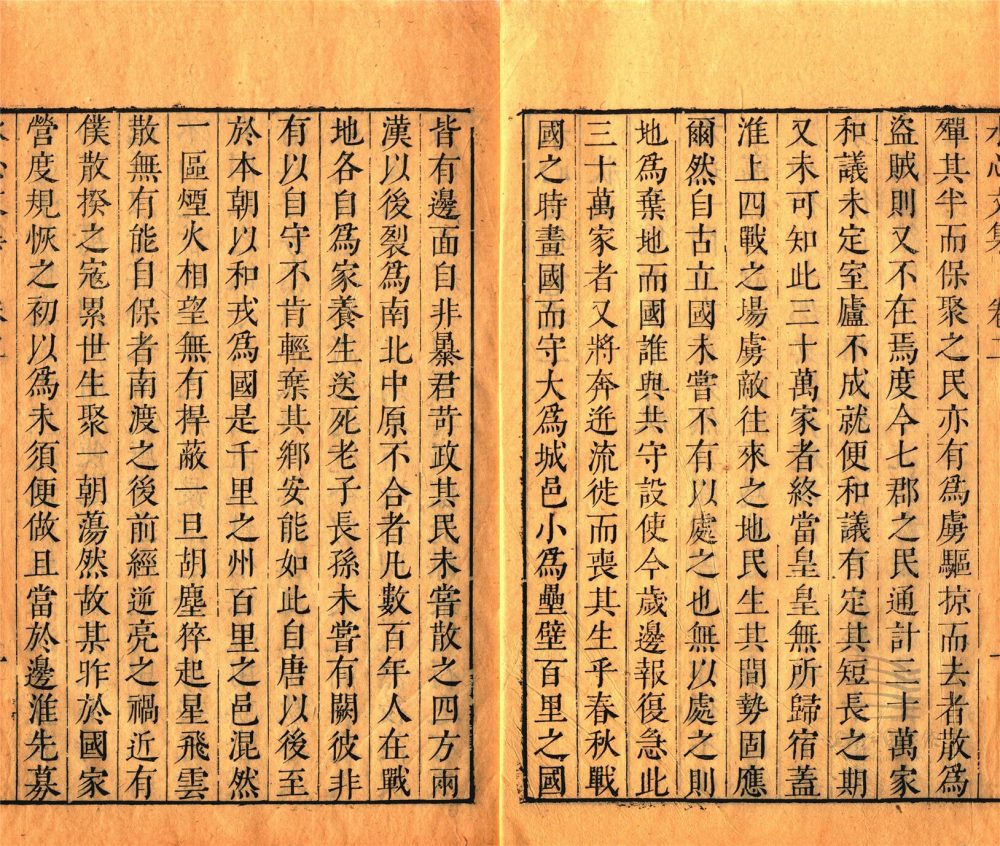 水心文集 卷二
殫其半而保聚之民亦有爲虜驅掠而去者散爲
盜賊則又不在焉度今七郡之民通計三十萬家
和議未定室廬不成就便和議有定其短長之期
又未可知此三十萬家者終當皇皇無所歸宿蓋
淮上四戰之場虜敵往來之地民生其間勢固應
爾然自古立國未嘗不有以處之也無以處之則
地爲棄地而國誰與共守設使今歲邊報復急此
三十萬家者又將奔迸流徙而喪其生乎春秋戰
國之時畫國而守大爲城邑小爲壘壁百里之國
皆有邊面自非暴君苛政其民未嘗散之四方兩
漢以後裂爲南北中原不合者凡數百年人在戰
地各自爲家養生送死老子長孫未嘗有闕彼非
有以自守不肯輕棄其鄉安能如此自唐以後至
於本朝以和戎爲國是千里之州百里之邑混然
一區煙火相望無有捍蔽一旦胡塵猝起星飛雲
散無有能自保者南渡之後前經逆亮之禍近有
僕散揆之寇累世生聚一朝蕩然故某昨於國家
營度規恢之初以爲未須便做且當於邊淮先募